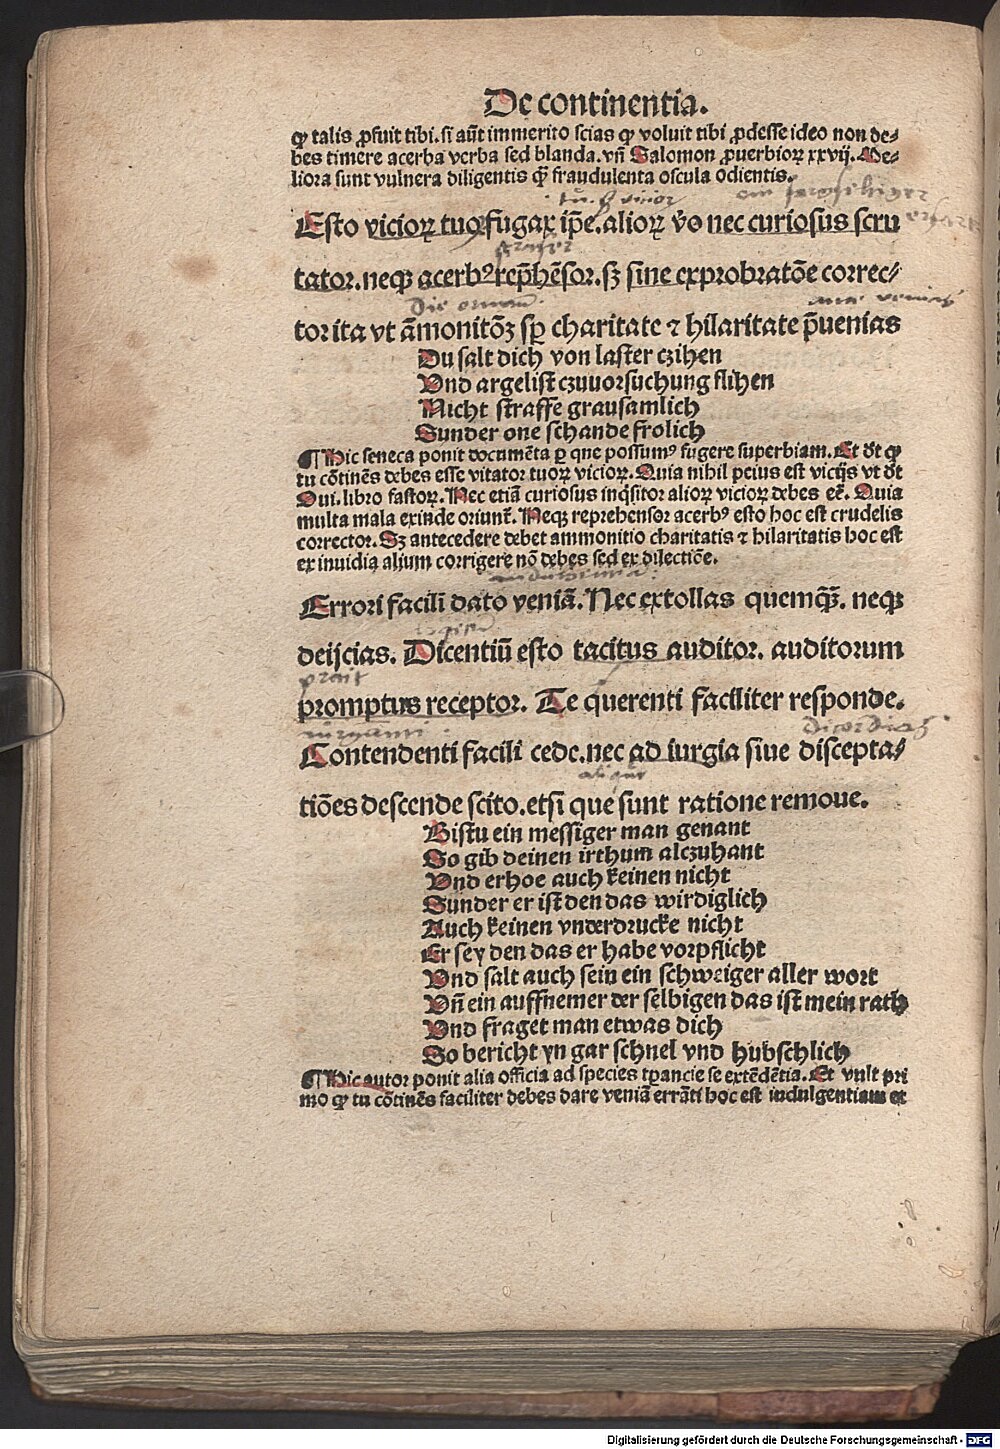 De continentia.
ꝙ talis ꝓfuit tibi. si aūt immerito scias ꝙ voluit tibi ꝓdesse ideo non de⸗
bes timere acerba verba sed blanda. vñ Salomon ꝓuerbioꝝ xxvij. Me⸗
liora sunt vulnera diligentis q̄ꝫ fraudulenta oscula odientis.
Esto vicioꝝ tuoꝝ fugax ip̄e. alioꝝ v̄o nec curiosus scru
tator. neqꝫ acerbꝰ rep̄hēsor. sꝫ sine exprobratōe correc⸗
tor ita vt āmonitōꝫ sꝑ charitate ⁊ hilaritate p̄uenias
Du salt dich von laster czihen
Vnd argelist czuuorsuchung flihen
Nicht straffe grausamlich
Sunder one schande frolich
¶ Hic seneca ponit documēta ꝑ que possumꝰ fugere superbiam. Et dt̄ ꝙ
tu cōtinēs debes esse vitator tuoꝝ vicioꝝ. Quia nihil peius est vicijs vt dt̄
Oui. libro fastoꝝ. Nec etiā curiosus inq̇sitor alioꝝ vicioꝝ debes eē. Quia
multa mala exinde oriunt̄. Neqꝫ reprehensor acerbꝰ esto hoc est crudelis
corrector. Sꝫ antecedere debet ammonitio charitatis ⁊ hilaritatis hoc est
ex inuidia alium corrigere nō debes sed ex dilectiōe.
Errori facili dato veniā. Nec extollas quemq̄ꝫ. neqꝫ
deijcias. Dicentiū esto tacitus auditor. auditorum
prait
promptus receptor. Te querenti faciliter responde.
Contendenti facili cede. nec ad iurgia siue discepta⸗
tiōes descende scito. etsi que sunt ratione remoue.
Bistu ein messiger man genant
So gib deinen irthum alczuhant
Vnd erhoe auch keinen nicht
Sunder er ist den das wirdiglich
Auch keinen vnderdrucke nicht
Er sey den das er habe vorpflicht
Vnd salt auch sein ein schweiger aller wort
Vñ ein auffnemer der selbigen das ist mein rath
Vnd fraget man etwas dich
So bericht yn gar schnel vnd hubschlich
¶ Hic autor ponit alia officia ad species tꝑancie se extēdētia. Et vult pri
mo ꝙ tu cōtinēs faciliter debes dare veniā errāti hoc est indulgentiam et
Digitalisierung gefördert durch die Deutsche Forschungsgemeinschaft - DFG